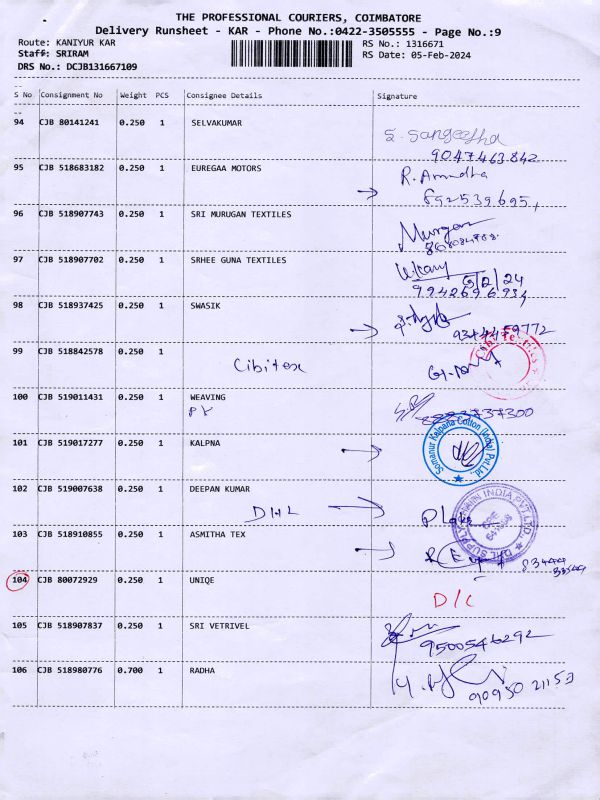 THE PROFESSIONAL COURIERS, COIMBATORE
Delivery Runsheet - KAR - Phone No.:0422-3505555 - Page No.:9
Route: KANIYUR KAR RS No.: 1316671
Staff: SRIRAM RS Date: 05-Feb-2024
DRS No.: DCJB131667109
S No Consignment No Weight PCS Consignee Details Signature
94 CJB 80141241 0.250 1 SELVAKUMAR
S. Sangeetha
9047463842
95 CJB 518683182 0.250 1 EUREGAA MOTORS
R. Amudha
96 CJB 518907743 0.250 1 SRI MURUGAN TEXTILES
Murgan
97 CJB 518907702 0.250 1 SRHEE GUNA TEXTILES
5/2/24
9942696934
98 CJB 518937425 0.250 1 SWASIK
9344459772
99 CJB 518842578 0.250 1
Cibitex
100 CJB 519011431 0.250 1 WEAVING
PY
101 CJB 519017277 0.250 1 KALPNA
Somanur Kalpana Cotton (India) Pvt.Ltd.
102 CJB 519007638 0.250 1 DEEPAN KUMAR
DHL
DHL SUPPLY CHAIN INDIA PVT.LTD.
103 CJB 518910855 0.250 1 ASMITHA TEX
104 CJB 80072929 0.250 1 UNIQE
D/C
105 CJB 518907837 0.250 1 SRI VETRIVEL
9500546292
106 CJB 518980776 0.700 1 RADHA
90950 21153